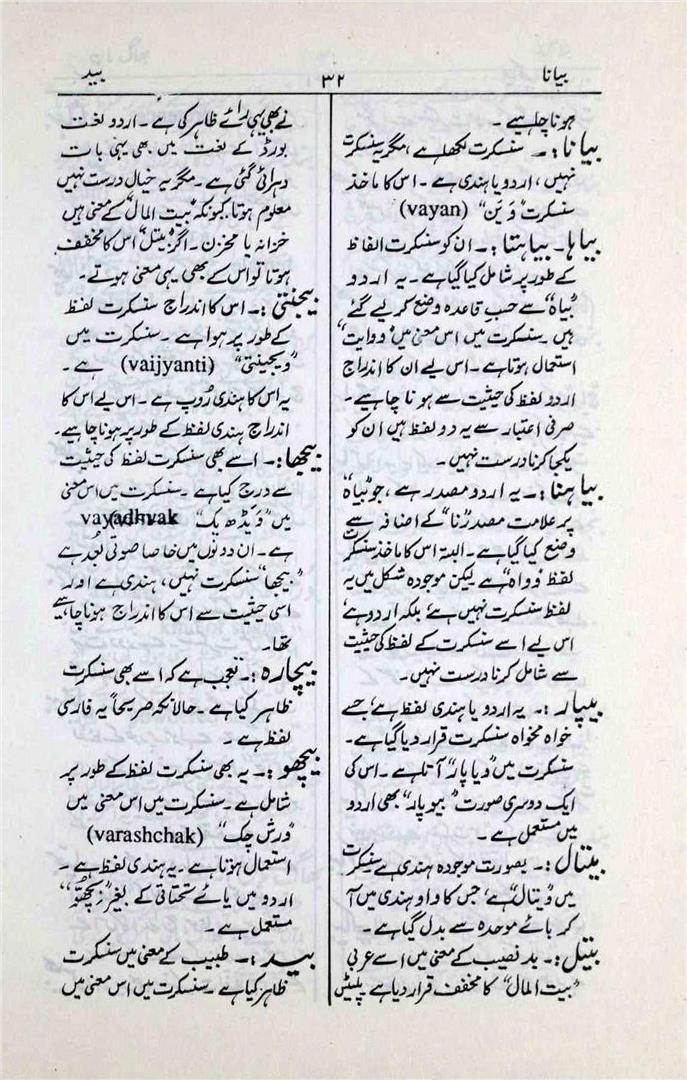 بیانا
۳۲
بید
ہونا چاہیے ۔
بیانا :۔ سنسکرت لکھا ہے ، مگر یہ سنسکرت
نہیں ، اردو یا ہندی ہے ۔ اس کا ماخذ
سنسکرت ”وَیَن“ (vayan)
بیاہا ۔ بیاہتا :۔ ان کو سنسکرت الفاظ
کے طور پر شامل کیا گیا ہے ۔ یہ اردو
”بیاہ“ سے حسب قاعدہ وضع کر لیے گئے
ہیں ۔ سنسکرت میں اس معنی میں ”وواہت“
استعمال ہوتا ہے ۔ اس لیے ان کا اندراج
اردو لفظ کی حیثیت سے ہونا چاہیے ۔
صرفی اعتبار سے یہ دو لفظ ہیں ان کو
یکجا کرنا درست نہیں ۔
بیاہنا :۔ یہ اردو مصدر ہے ، جو ”بیاہ“
پر علامت مصدر ”نا“ کے اضافہ سے
وضع کیا گیا ہے ۔ البتہ اس کا ماخذ سنسکرت
لفظ ”وواہ“ ہے لیکن موجودہ شکل میں یہ
لفظ سنسکرت نہیں ہے ، بلکہ اردو ہے ،
اس لیے اسے سنسکرت کے لفظ کی حیثیت
سے شامل کرنا درست نہیں ۔
بیپار :۔ یہ اردو یا ہندی لفظ ہے ، جسے
خواہ مخواہ سنسکرت قرار دیا گیا ہے ۔
سنسکرت میں ”ویاپار“ آتا ہے ۔ اس کی
ایک دوسری صورت ”بیوپار“ بھی اردو
میں مستعمل ہے ۔
بیتال :۔ بصورت موجودہ ہندی ہے سنسکرت
میں ”ویتال“ ہے ، جس کا واو ہندی میں آ
کر بائے موحدہ سے بدل گیا ہے ۔
بیتل :۔ بد نصیب کے معنی میں اسے عربی
”بیت المال“ کا مخفف قرار دیا ہے پلیٹس
نے بھی یہی رائے ظاہر کی ہے ۔ اردو لغت
بورڈ کے لغت میں بھی یہی بات
دہرائی گئی ہے ۔ مگر یہ خیال درست نہیں
معلوم ہوتا کیونکہ ”بیت المال“ کے معنی ہیں
خزانہ یا مخزن ۔ اگر ”بیتل“ اس کا مخفف
ہوتا تو اس کے بھی یہی معنی ہوتے ۔
بیجنتی :۔ اس کا اندراج سنسکرت لفظ
کے طور پر ہوا ہے ۔ سنسکرت میں
”ویجینتی“ (vaijyanti) ہے ۔
یہ اس کا ہندی رُوپ ہے ۔ اس لیے اس کا
اندراج ہندی لفظ کے طور پر ہونا چاہیے ۔
بیجھا :۔ اسے بھی سنسکرت لفظ کی حیثیت
سے درج کیا ہے ۔ سنسکرت میں اس معنی
میں ”ویڈھیک“
ہے ۔ ان دونوں میں خاصا صوتی بُعد ہے
”بیجھا“ سنسکرت نہیں ، ہندی ہے اور
اسی حیثیت سے اس کا اندراج ہونا چاہیے
تھا ۔
بیچارہ :۔ تعجب ہے کہ اسے بھی سنسکرت
ظاہر کیا ہے ۔ حالانکہ صریحاً یہ فارسی
لفظ ہے ۔
بیچھو :۔ یہ بھی سنسکرت لفظ کے طور پر
شامل ہے ۔ سنسکرت میں اس معنی میں
”ورش چک“ (varashchak)
استعمال ہوتا ہے ۔ یہ ہندی لفظ ہے ۔
اردو میں یائے تحتانی کے بغیر ”بچھو“
مستعمل ہے ۔
بید :۔ طبیب کے معنی میں سنسکرت
ظاہر کیا ہے ۔ سنسکرت میں اس معنی میں